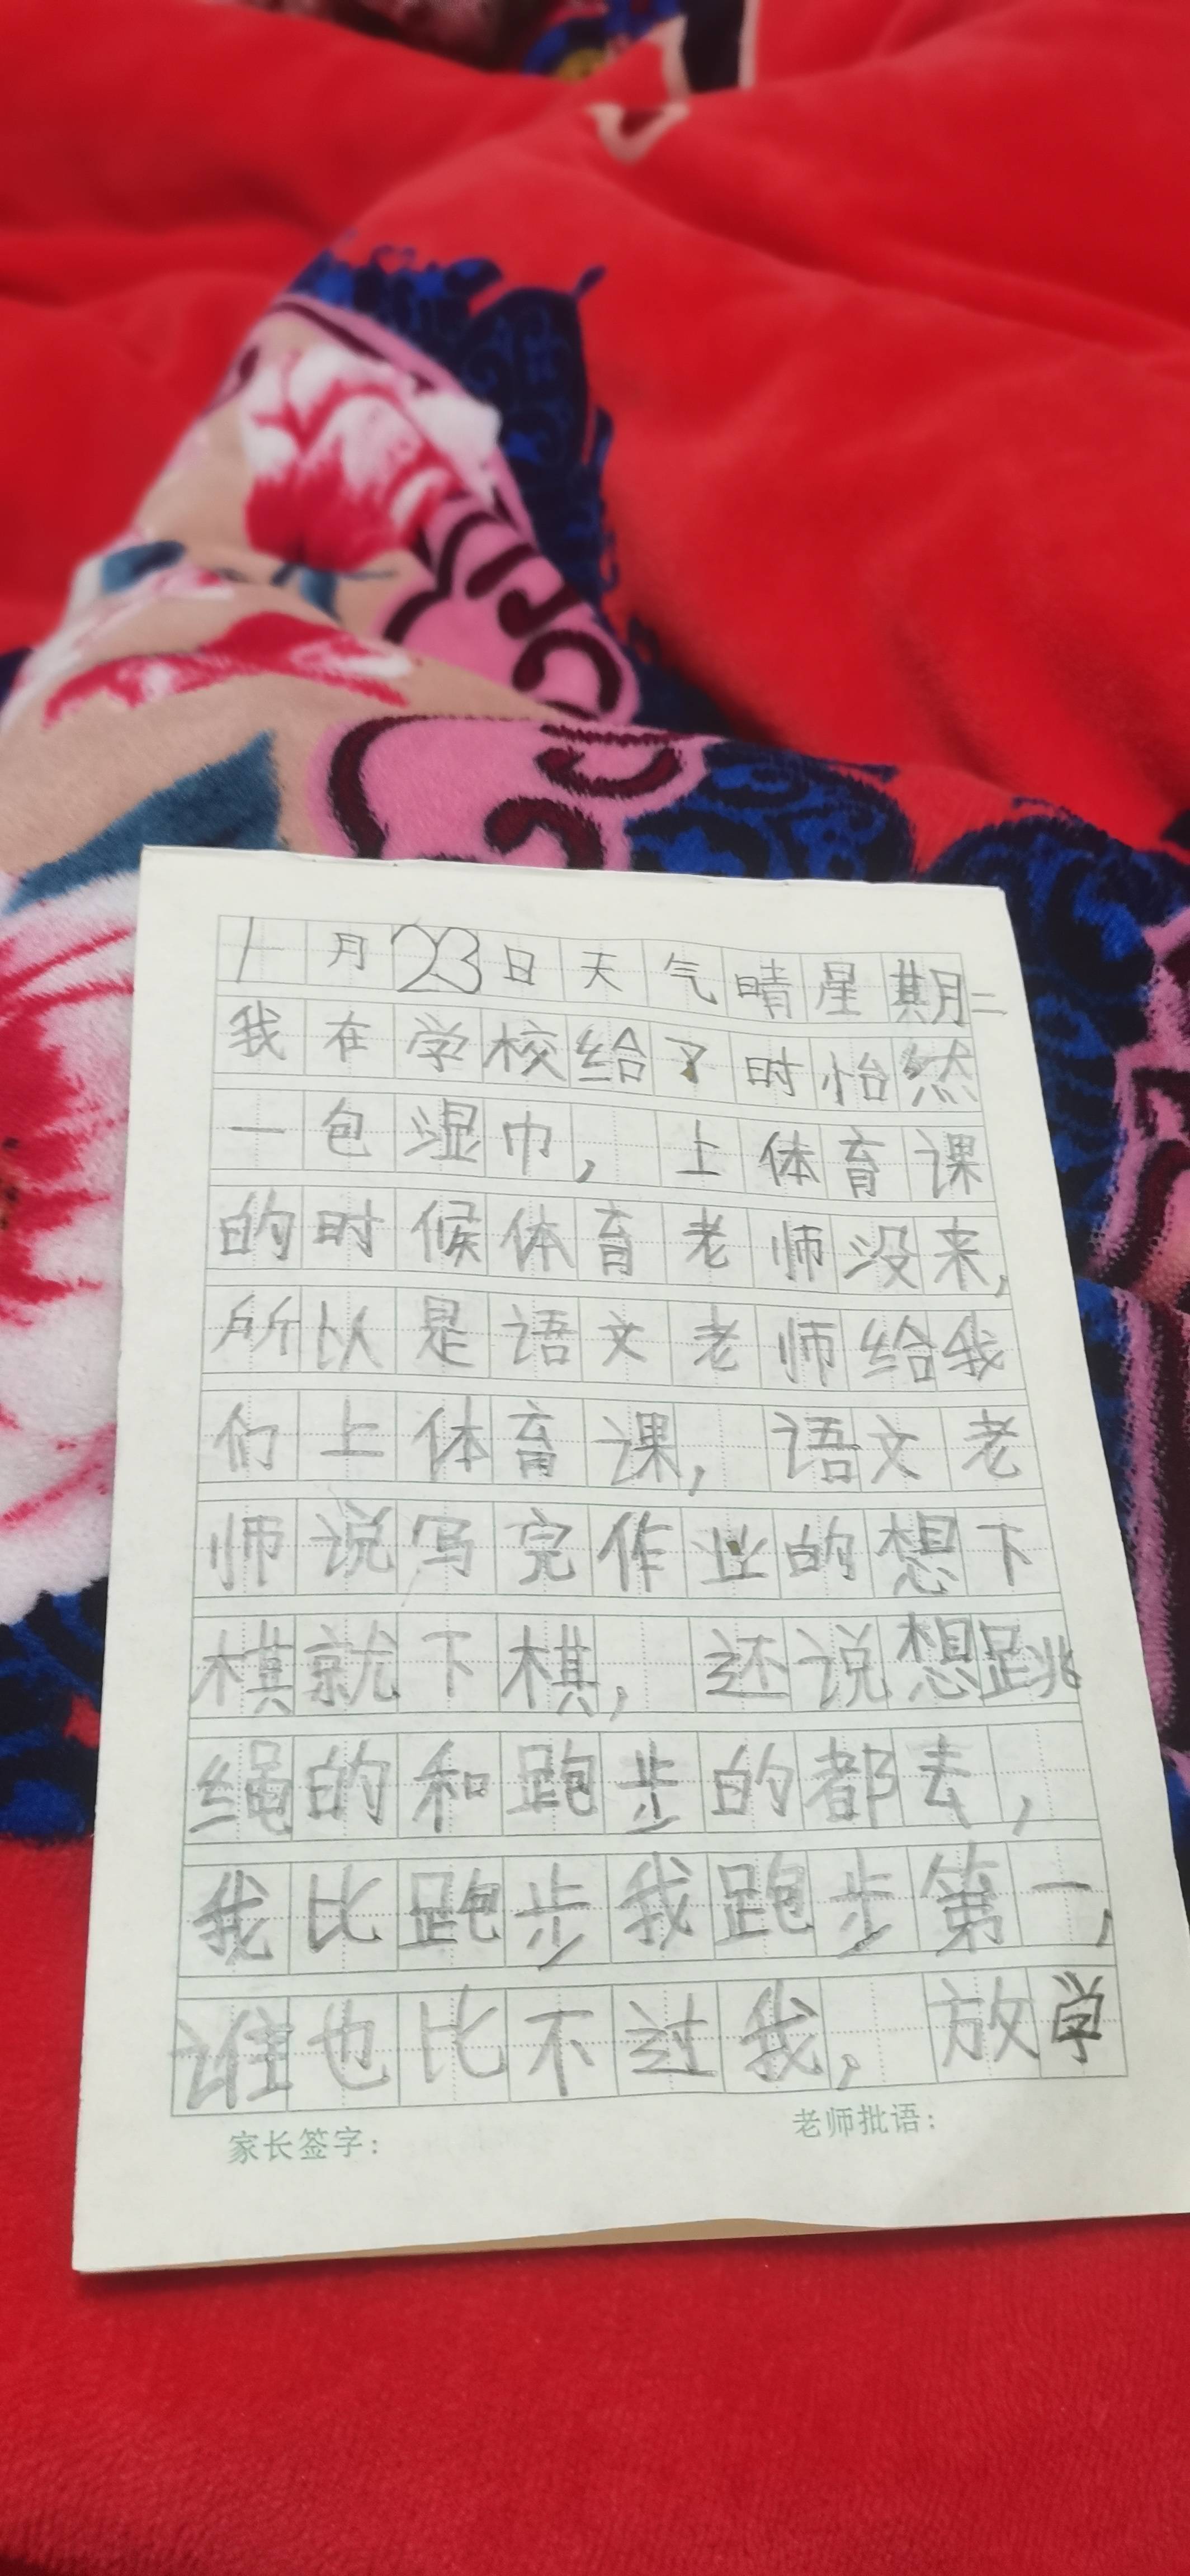 1月23日天气晴星期二
我在学校给了时怡然
一包湿巾，上体育课
的时候体育老师没来，
所以是语文老师给我
们上体育课，语文老
师说写完作业的想下
棋就下棋，还说想跳
绳的和跑步的都去，
我比跑步我跑步第一，
谁也比不过我，放学
家长签字：
老师批语：